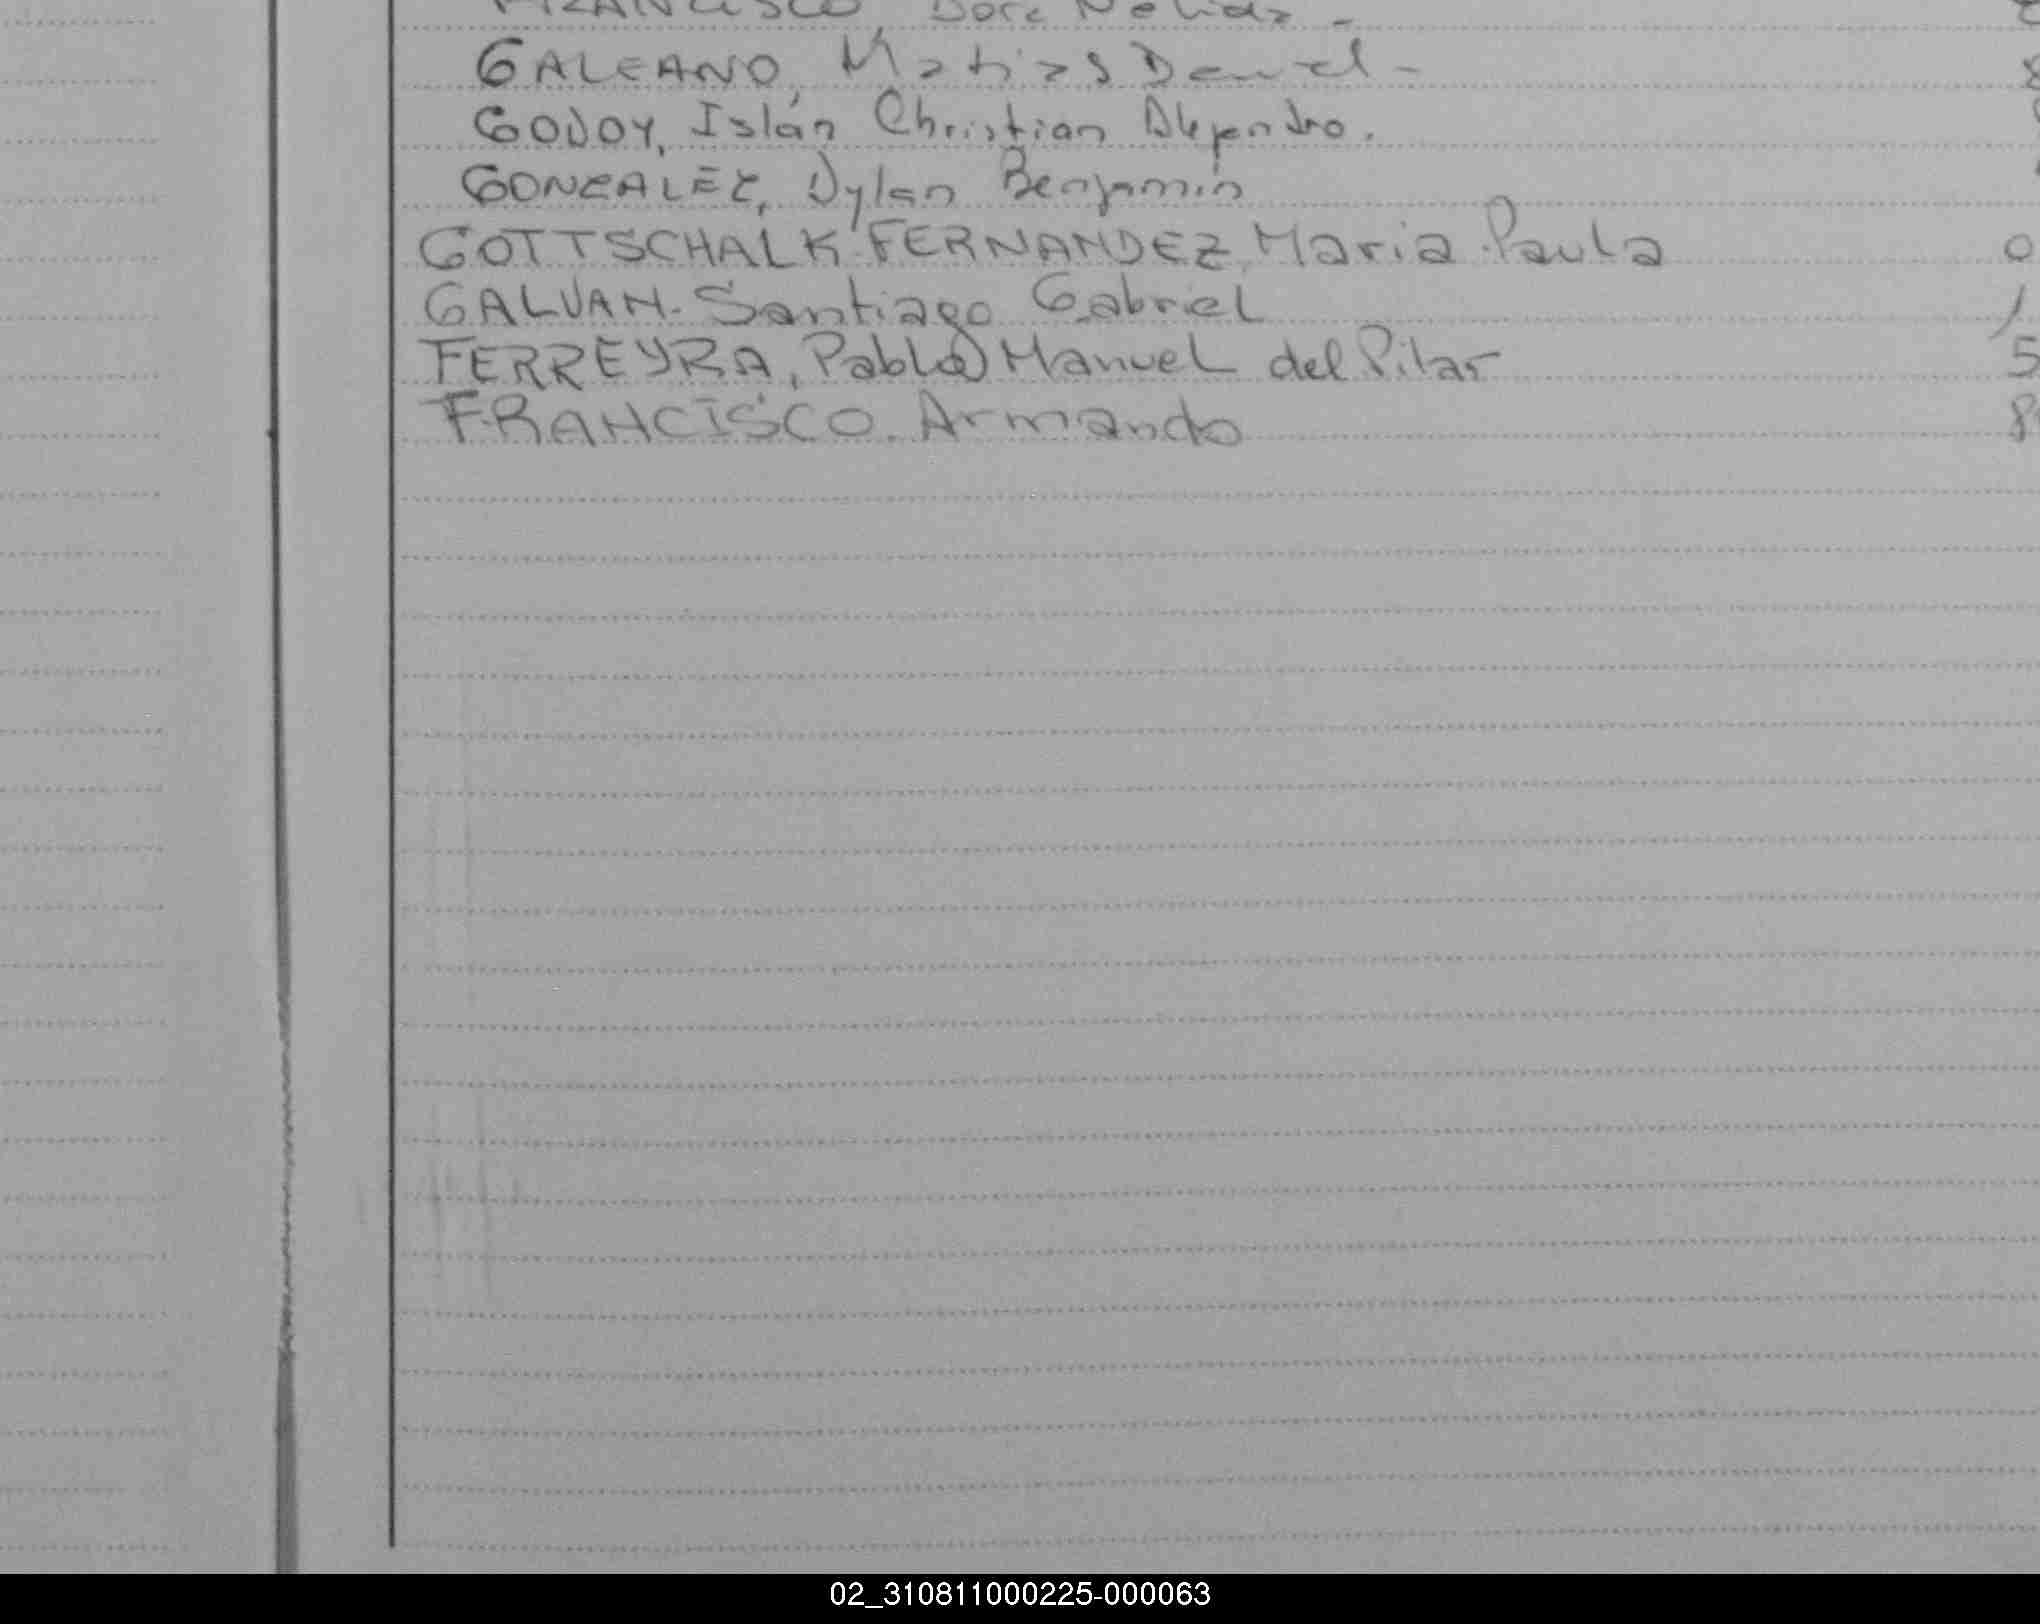 FRANCISCO, Dora Nelida -
GALEANO, Matias Daniel -
GODOY, Islán Christian Alejandro.
GONZALEZ, Dylan Benjamín
GOTTSCHALK FERNANDEZ, Maria Paula 0
GALVAN. Santiago Gabriel 1
FERREYRA, Pablo Manuel del Pilar 5
FRANCISCO. Armando 8
02_310811000225-000063